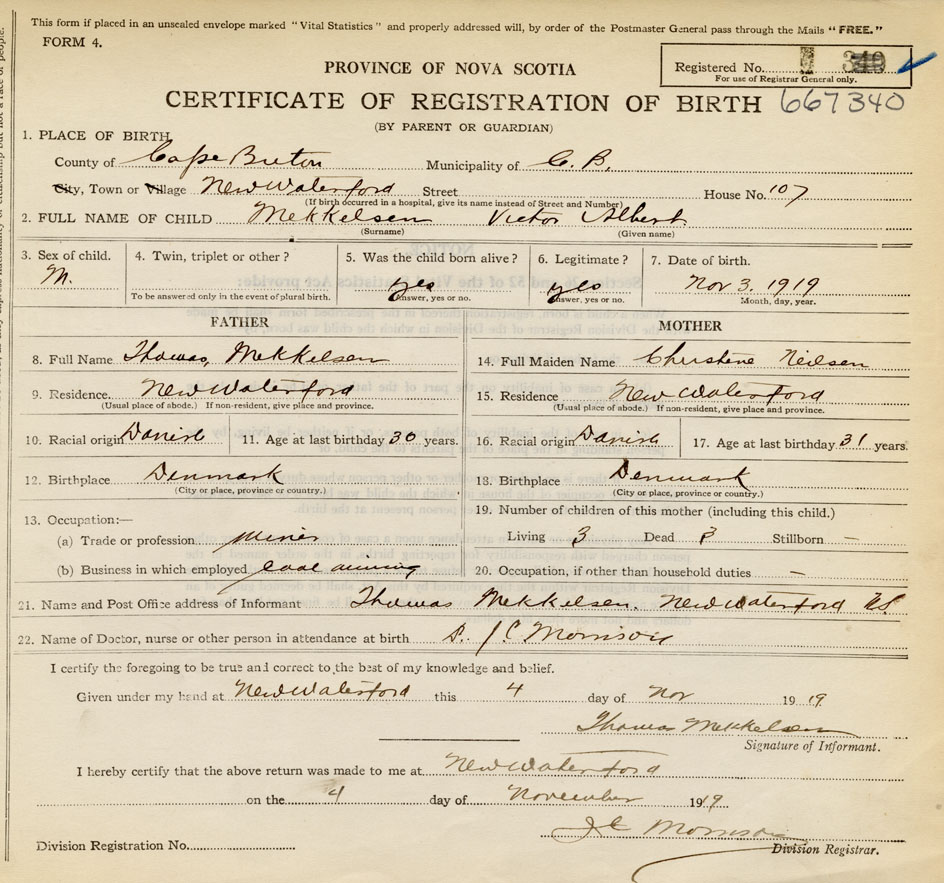 This form if placed in an unsealed envelope marked "Vital Statistics" and properly addressed will, by order of the Postmaster General pass through the Mails "FREE."
FORM 4.
Registered No. 340
For use of Registrar General only.
PROVINCE OF NOVA SCOTIA
CERTIFICATE OF REGISTRATION OF BIRTH 667340
(BY PARENT OR GUARDIAN)
1. PLACE OF BIRTH
County of Cape Breton Municipality of C. B.
City, Town or Village New Waterford Street House No. 107
(If birth occurred in a hospital, give its name instead of Street and Number)
2. FULL NAME OF CHILD Mekkelsen Victor Albert
(Surname) (Given name)
3. Sex of child. 4. Twin, triplet or other? 5. Was the child born alive? 6. Legitimate? 7. Date of birth.
M. yes yes Nov 3. 1919
To be answered only in the event of plural birth. Answer, yes or no. Answer, yes or no. Month, day, year.
FATHER MOTHER
8. Full Name Thomas Mekkelsen 14. Full Maiden Name Christene Neilsen
9. Residence. New Waterford 15. Residence New Waterford
(Usual place of abode.) If non-resident, give place and province. (Usual place of abode.) If non-resident, give place and province.
10. Racial origin Danish 11. Age at last birthday 30 years. 16. Racial origin Danish 17. Age at last birthday 31 years.
12. Birthplace Denmark 18. Birthplace Denmark
(City or place, province or country.) (City or place, province or country.)
13. Occupation:— 19. Number of children of this mother (including this child.)
(a) Trade or profession miner Living 3 Dead Stillborn —
(b) Business in which employed coal mining 20. Occupation, if other than household duties —
21. Name and Post Office address of Informant Thomas Mekkelsen. New Waterford N.S.
22. Name of Doctor, nurse or other person in attendance at birth J C Morrison
I certify the foregoing to be true and correct to the best of my knowledge and belief.
Given under my hand at New Waterford this 4 day of Nov 1919
Thomas Mekkelsen
Signature of Informant.
I hereby certify that the above return was made to me at New Waterford
on the 4 day of November 1919
J C Morrison
Division Registration No. Division Registrar.